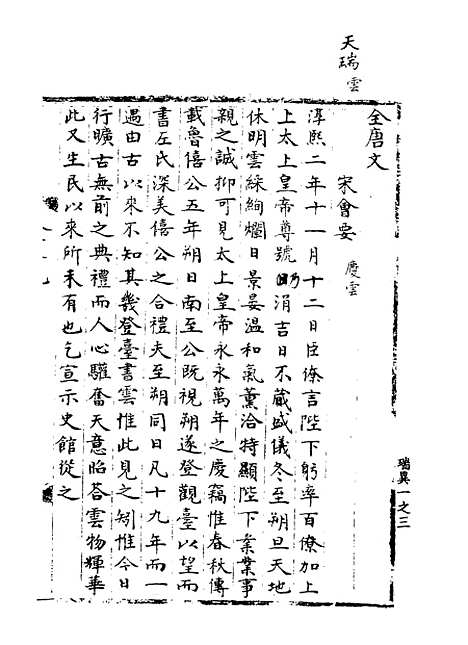 天瑞雲
全唐文
宋會要 慶雲
淳熙二年十一月十二日臣僚言陛下躬率百僚加上
上太上皇帝尊號涓吉日不蕆盛儀冬至朔旦天地
休明雲綵絢爛日景晏温和氣薰洽特顯陛下業業事
親之誠抑可見太上皇帝永永萬年之慶竊惟春秋傳
載魯僖公五年朔日南至公既視朔遂登觀臺以望而
書左氏深美僖公之合禮夫至朔同日凡十九年而一
遇由古以來不知其幾登臺書雲惟此見之矧惟今日
行曠古無前之典禮而人心驩奮天意昭荅雲物輝華
此又生民以來所未有也乞宣示史館從之
瑞異一之三